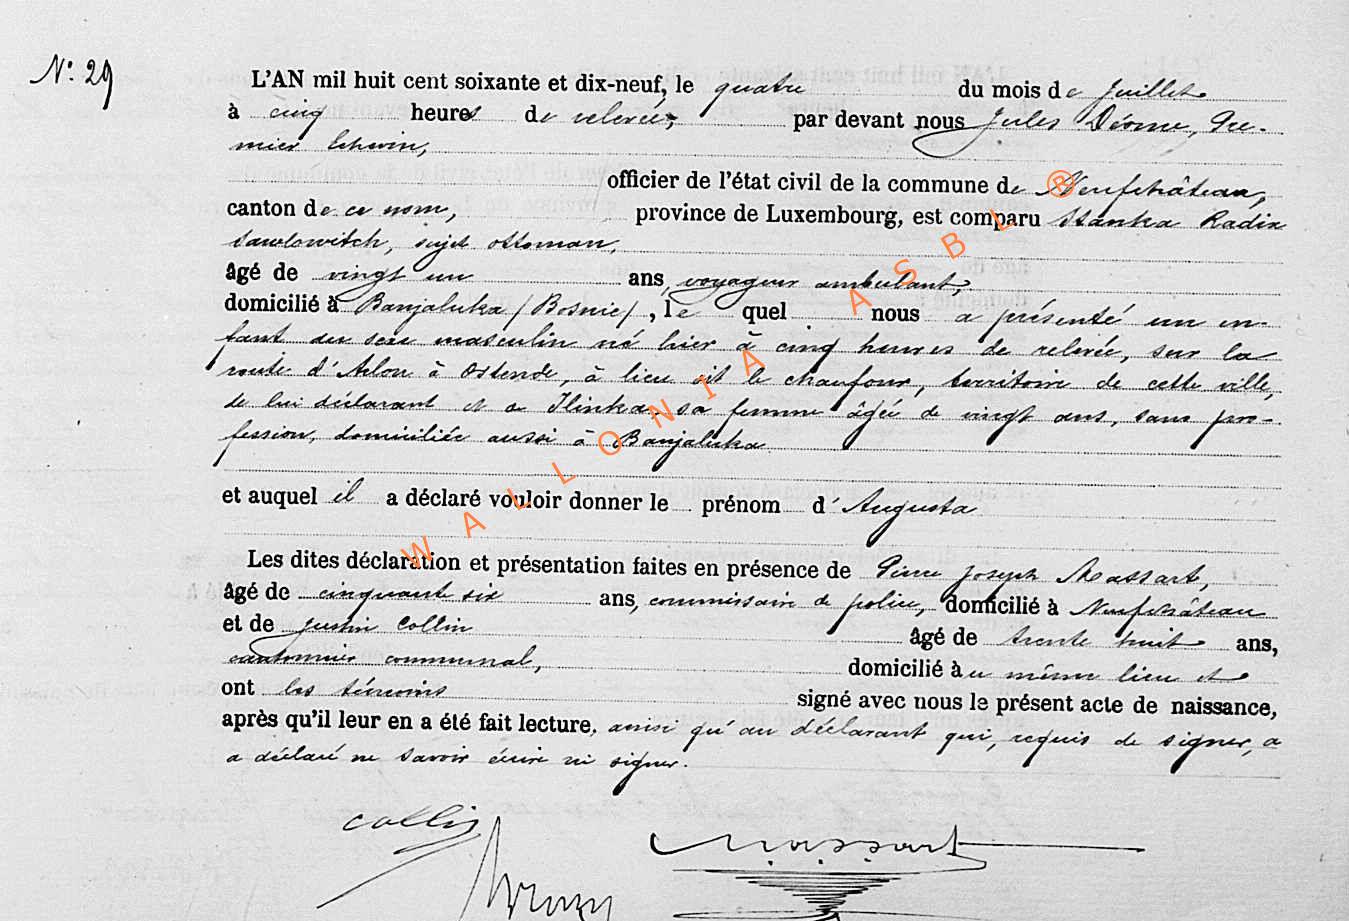 N° 29
L'AN mil huit cent soixante et dix-neuf, le quatre du mois de Juillet
à cinq heures de relevée, par devant nous Jules Dérome, Pre-
mier Echevin,
officier de l'état civil de la commune de Neufchâteau,
canton de ce nom, province de Luxembourg, est comparu Stanka Radix
Sawlowitch, sujet ottoman,
âgé de vingt un ans, voyageur ambulant,
domicilié à Banjaluka (Bosnie), le quel nous a présenté un en-
fant du sexe masculin né hier à cinq heures de relevée, sur la
route d'Arlon à Ostende, à lieu dit le chaufour, territoire de cette ville,
de lui déclarant et de Ilinka, sa femme âgée de vingt ans, sans pro-
fession, domiciliée aussi à Banjaluka
et auquel il a déclaré vouloir donner le prénom d'Augusta
Les dites déclaration et présentation faites en présence de Pierre Joseph Massart,
âgé de cinquante six ans, commissaire de police, domicilié à Neufchâteau
et de Justin Collin âgé de trente huit ans,
cantonnier communal, domicilié au même lieu et
ont les témoins signé avec nous le présent acte de naissance,
après qu'il leur en a été fait lecture, ainsi qu'au déclarant qui, requis de signer, a
a déclaré ne savoir écrire ni signer.
Collin
Massart
WALLONIA ASBL ®